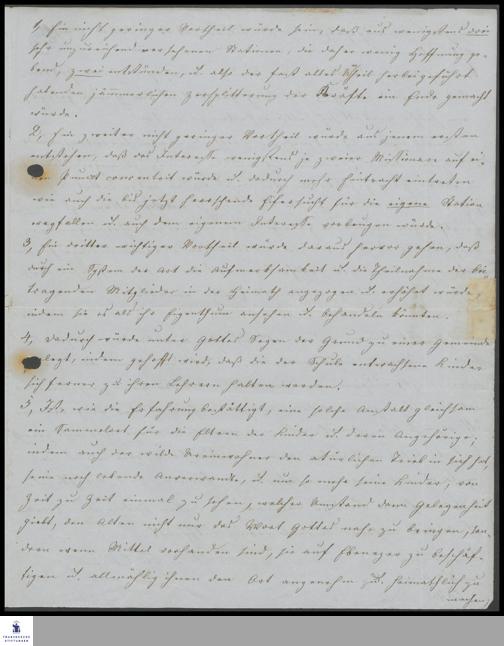 1, Ein nicht geringer Vortheil würde sein, daß aus wenigstens drei
sehr unzureichend versehenen Stationen, die daher wenig Hoffnung ge-
ben, zwei entstünden, u. also der fast alles Unheil herbeigeführt
habenden jämmerlichen Zersplitterung der Kräfte ein Ende gemacht
würde.
2, Ein zweiter nicht geringer Vortheil würde aus jenem ersten
entstehen, daß das Interesse wenigstens je zweier Missionare auf ei-
nen Punct concentrirt würde u. dadurch mehr Eintracht eintreten
wie auch die bis jetzt herrschende Eifersucht für die eigene Station
wegfallen u. auch dem eigenen Interesse vorbeugen würde.
3, Ein dritter wichtiger Vortheil würde daraus hervor gehen, daß
durch ein System der Art die Aufmerksamkeit u. die Theilnahme der bei-
tragenden Mitglieder in der Heimath angezogen u. erhöhet würde,
indem sie es als ihr Eigenthum ansehen u. behandeln könnten.
4, Dadurch würde unter Gottes Segen der Grund zu einer Gemeinde
gelegt, indem gehofft wird, daß die der Schule entwachsene Kinder
sich ferner zu ihren Lehrern halten werden.
5, Ist, wie die Erfahrung bestättigt, eine solche Anstalt gleichsam
ein Sammelort für die Eltern der Kinder u. deren Angehörige;
indem auch der wilde Ureinwohner den natürlichen Trieb in sich hat,
seine noch lebende Anverwandte, u. um so mehr seine Kinder, von
Zeit zu Zeit einmal zu sehen, welcher Umstand dann Gelegenheit
giebt, den Alten nicht nur das Wort Gottes nahe zu bringen, son-
dern wenn Mittel vorhanden sind, sie auf Ebenezer zu beschäf-
tigen u. allmählig ihnen den Ort angenehm u. heimathlich zu
machen;
FRANCKESCHE
STIFTUNGEN